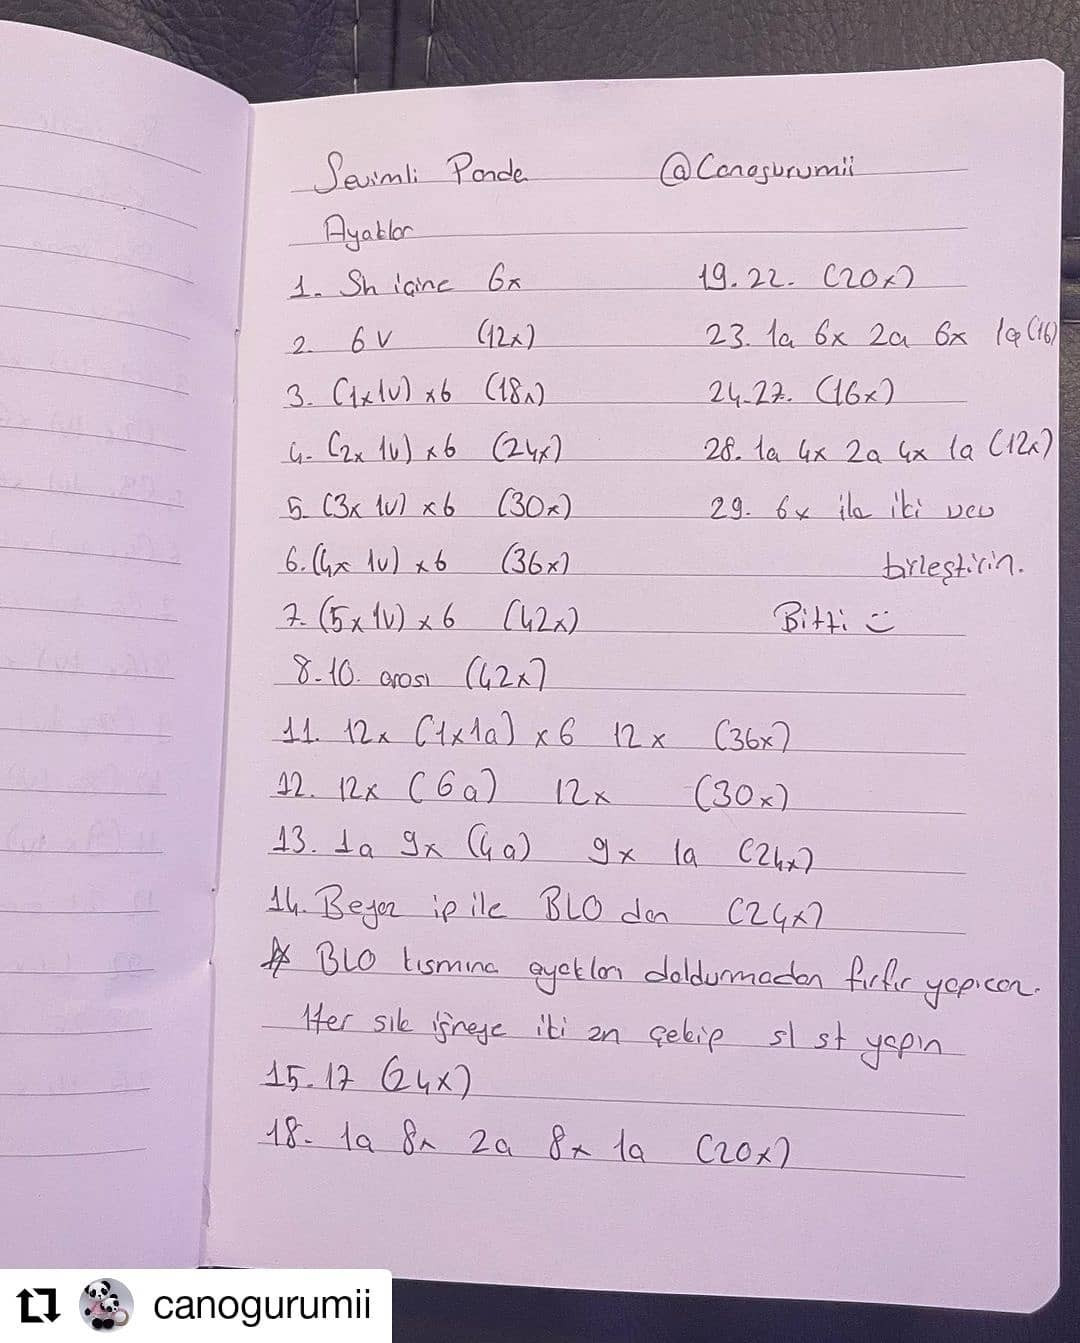 Sevimli Panda @Canogurumii
Ayaklar
1. Sh içine 6x
2. 6V (12x)
3. (1x1v) x6 (18x)
4. (2x 1v) x6 (24x)
5. (3x 1v) x6 (30x)
6. (4x 1v) x6 (36x)
7. (5x1v) x6 (42x)
8.10. arası (42x)
11. 12x (1x1a) x6 12x (36x)
12. 12x (6a) 12x (30x)
13. 1a 9x (4a) 9x 1a (24x)
14. Beyaz ip ile BLO dan (24x)
☆ BLO kısmına ayakları doldurmadan fırfır yapıcaz.
Her sık iğneye iki zn çekip sl st yapın
15.17 (24x)
18. 1a 8x 2a 8x 1a (20x)
19.22. (20x)
23. 1a 6x 2a 6x 1a (16)
24-27. (16x)
28. 1a 4x 2a 4x 1a (12x)
29. 6x ile iki ucu
birleştirin.
Bitti
canogurumii